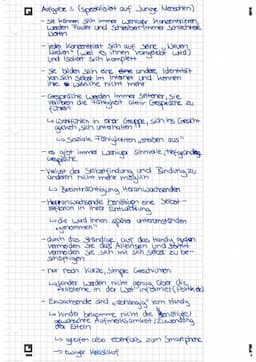 Aufgabe 2 (Spezialität auf Junge Menschen)
- Sie können sich immer weniger konzentrieren,
werden Fauler und Schreiben immer schlechtere
Noten
- jeder konzentriert sich auf seine „Neuen
Medien" (weil es ihnen vorgelebt wird)
und isoliert sich komplett
- Sie bilden sich eine andere Identität
von sich selbst im Internet und kennen
ihre wirkliche nicht mehr
- Gespräche werden immer seltener, sie
verlieren die Fähigkeit aktiv Gespräche zu
führen
↳ Wohlfühlen in einer Gruppe, sich ins Gesicht
gucken, sich unterhalten
↳ Soziale Fähigkeiten „sterben aus"
- es gibt immer weniger sinnvolle, tiefgründige
Gespräche
- Verlust der Selbstfindung und Bindung zu
anderen nicht mehr möglich
↳ Beeinträchtigung Heranwachsenden
- Heranwachsende benötigen eine Selbst-
in ihrer Entwicklung
↳ die wird ihnen später
genommen"
- durch das ständige auf das Handy gucken
vermeiden sie das Alleinsein und somit
vermeiden sie sich mit sich selbst zu be-
schäftigen
- nur noch kurze, simple Geschichten
↳ Kinder werden nicht genug über die
Probleme in der Welt informiert (Politik etc)
- Erwachsende sind „abhängig" vom Handy
↳ Kinder bekommen nicht die
gewünschte Aufmerksamkeit/Zuwendung
der Eltern
↳ greifen also ebenfalls zum Smartphone
→ ewiger Kreislauf